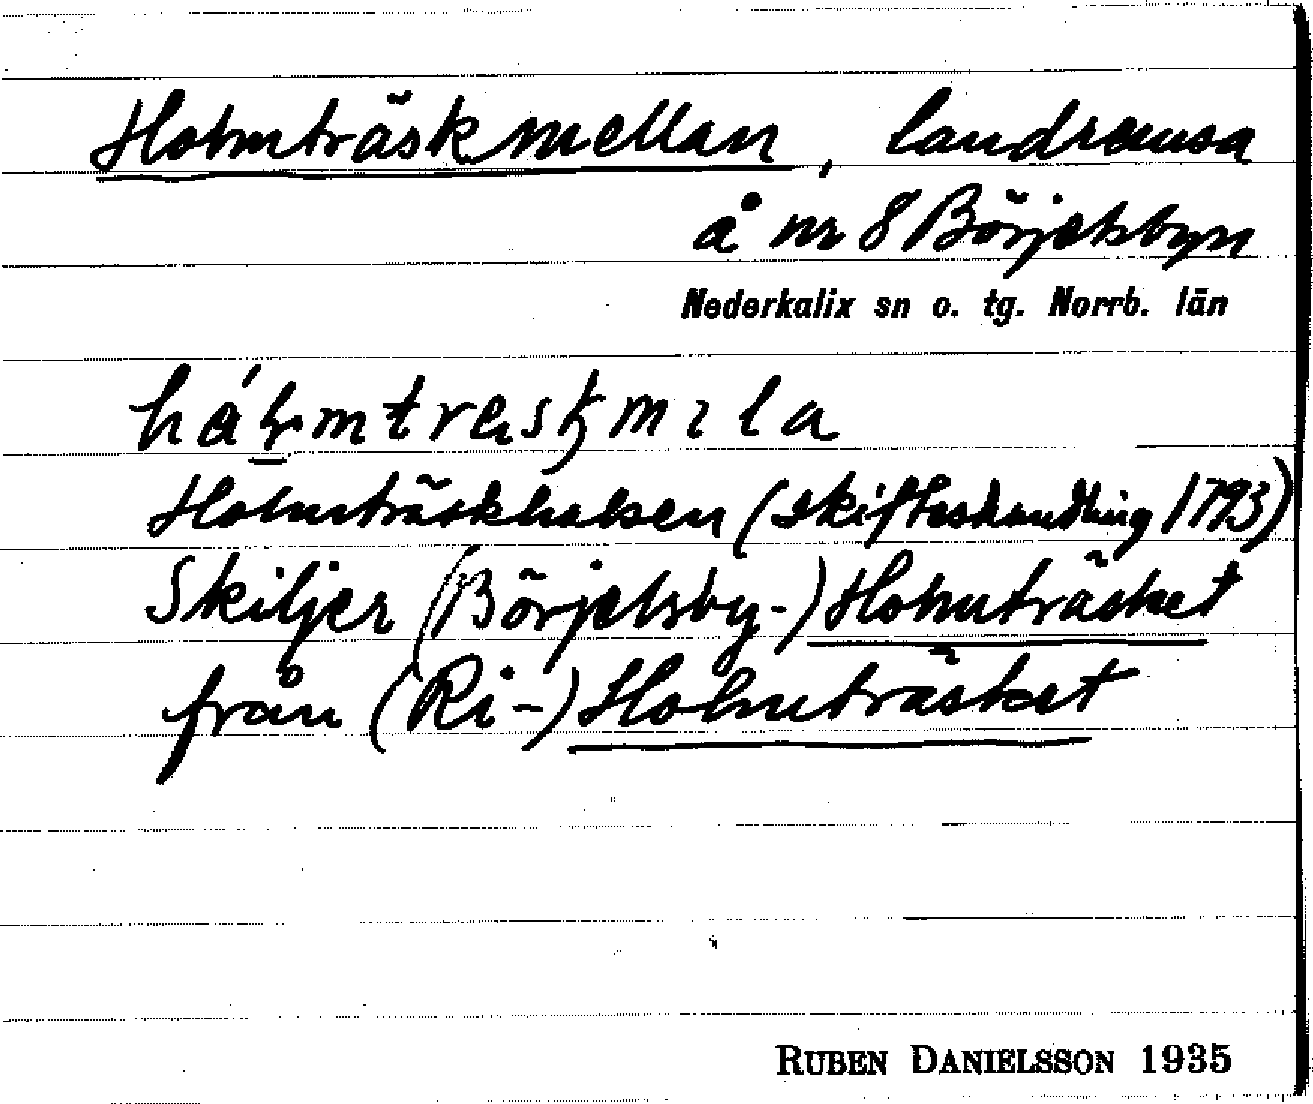 Holmträskmellan, landremsa
å nr 8 Börjelsbyn
Nederkalix sn o. tg. Norrb. län
Holmträskhalsen (Skifteshandling 1793)
Skiljer (Börjelsby-) Holmträsket
från (Ri-) Holmträsket
RUBEN DANIELSSON 1935